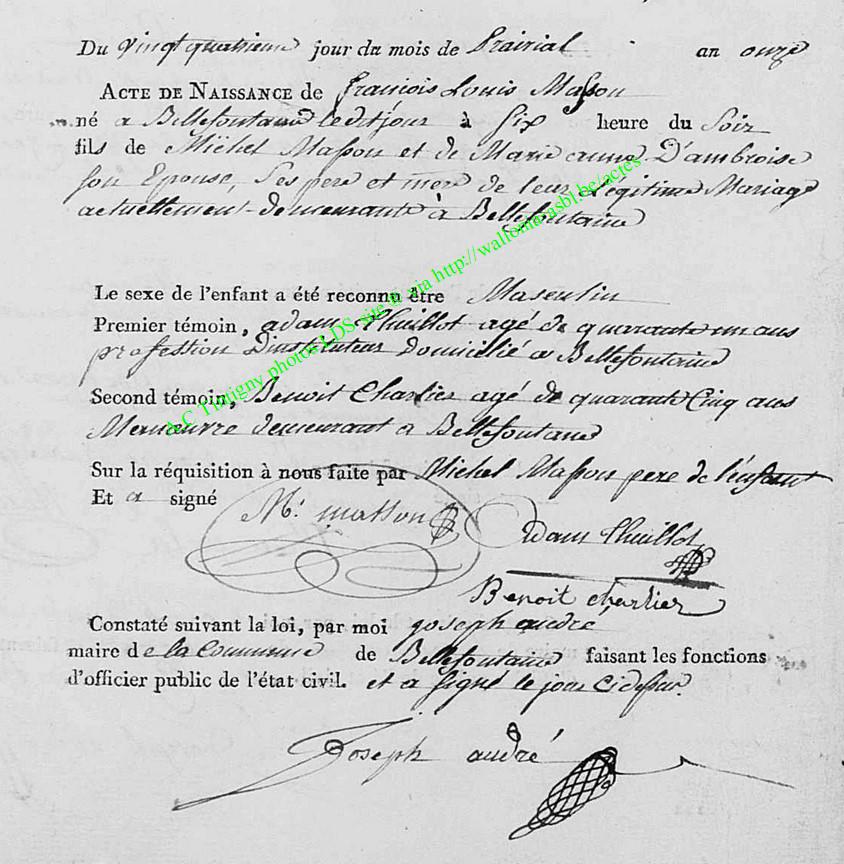 Du vingt quatrieme jour du mois de Prairial an onze
ACTE DE NAISSANCE de françois Louis Masson
né a Bellefontaine ledit jour à Six heure du Soir
fils de Michel Masson et de Marie anne D'ambroise
son Epouse, Ses pere et mere de leur Légitime Mariage
actuellement demeurante à Bellefontaine
Le sexe de l'enfant a été reconnu être Masculin
Premier témoin, adam Thuillot agé de quarante un ans
profession D'instituteur domicilié a Bellefontaine
Second témoin, Benoit Charlier agé de quarante Cinq ans
Menœuvre demeurant a Bellefontaine
Sur la réquisition à nous faite par Michel Masson pere de l'enfant
Et a signé
M: masson
adam thuillot
Benoit charlier
Constaté suivant la loi, par moi joseph andré
maire de la Commune de Bellefontaine faisant les fonctions
d'officier public de l'état civil. et a signé le jour cidessus.
Joseph andré
A.C Tintigny photos LDS site tt via http://wallonia.asbl.be/actes